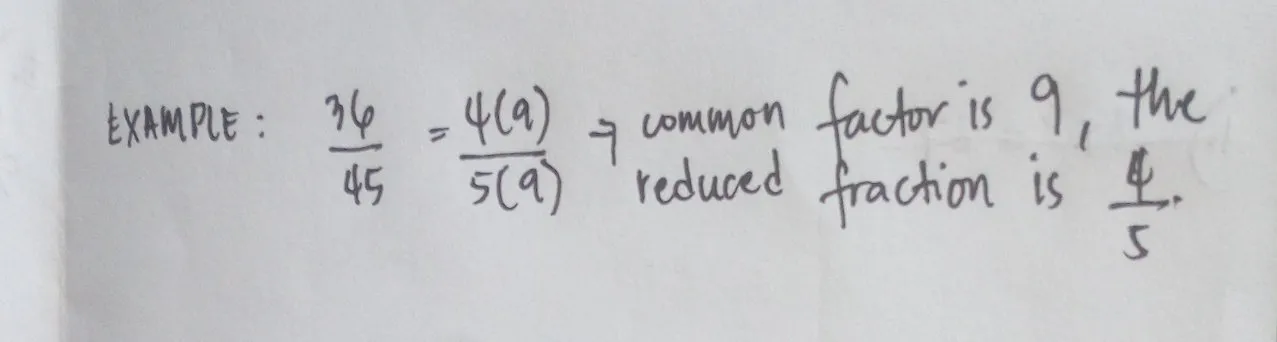 EXAMPLE: 36/45 = 4(9)/5(9) → common factor is 9, the
reduced fraction is 4/5.